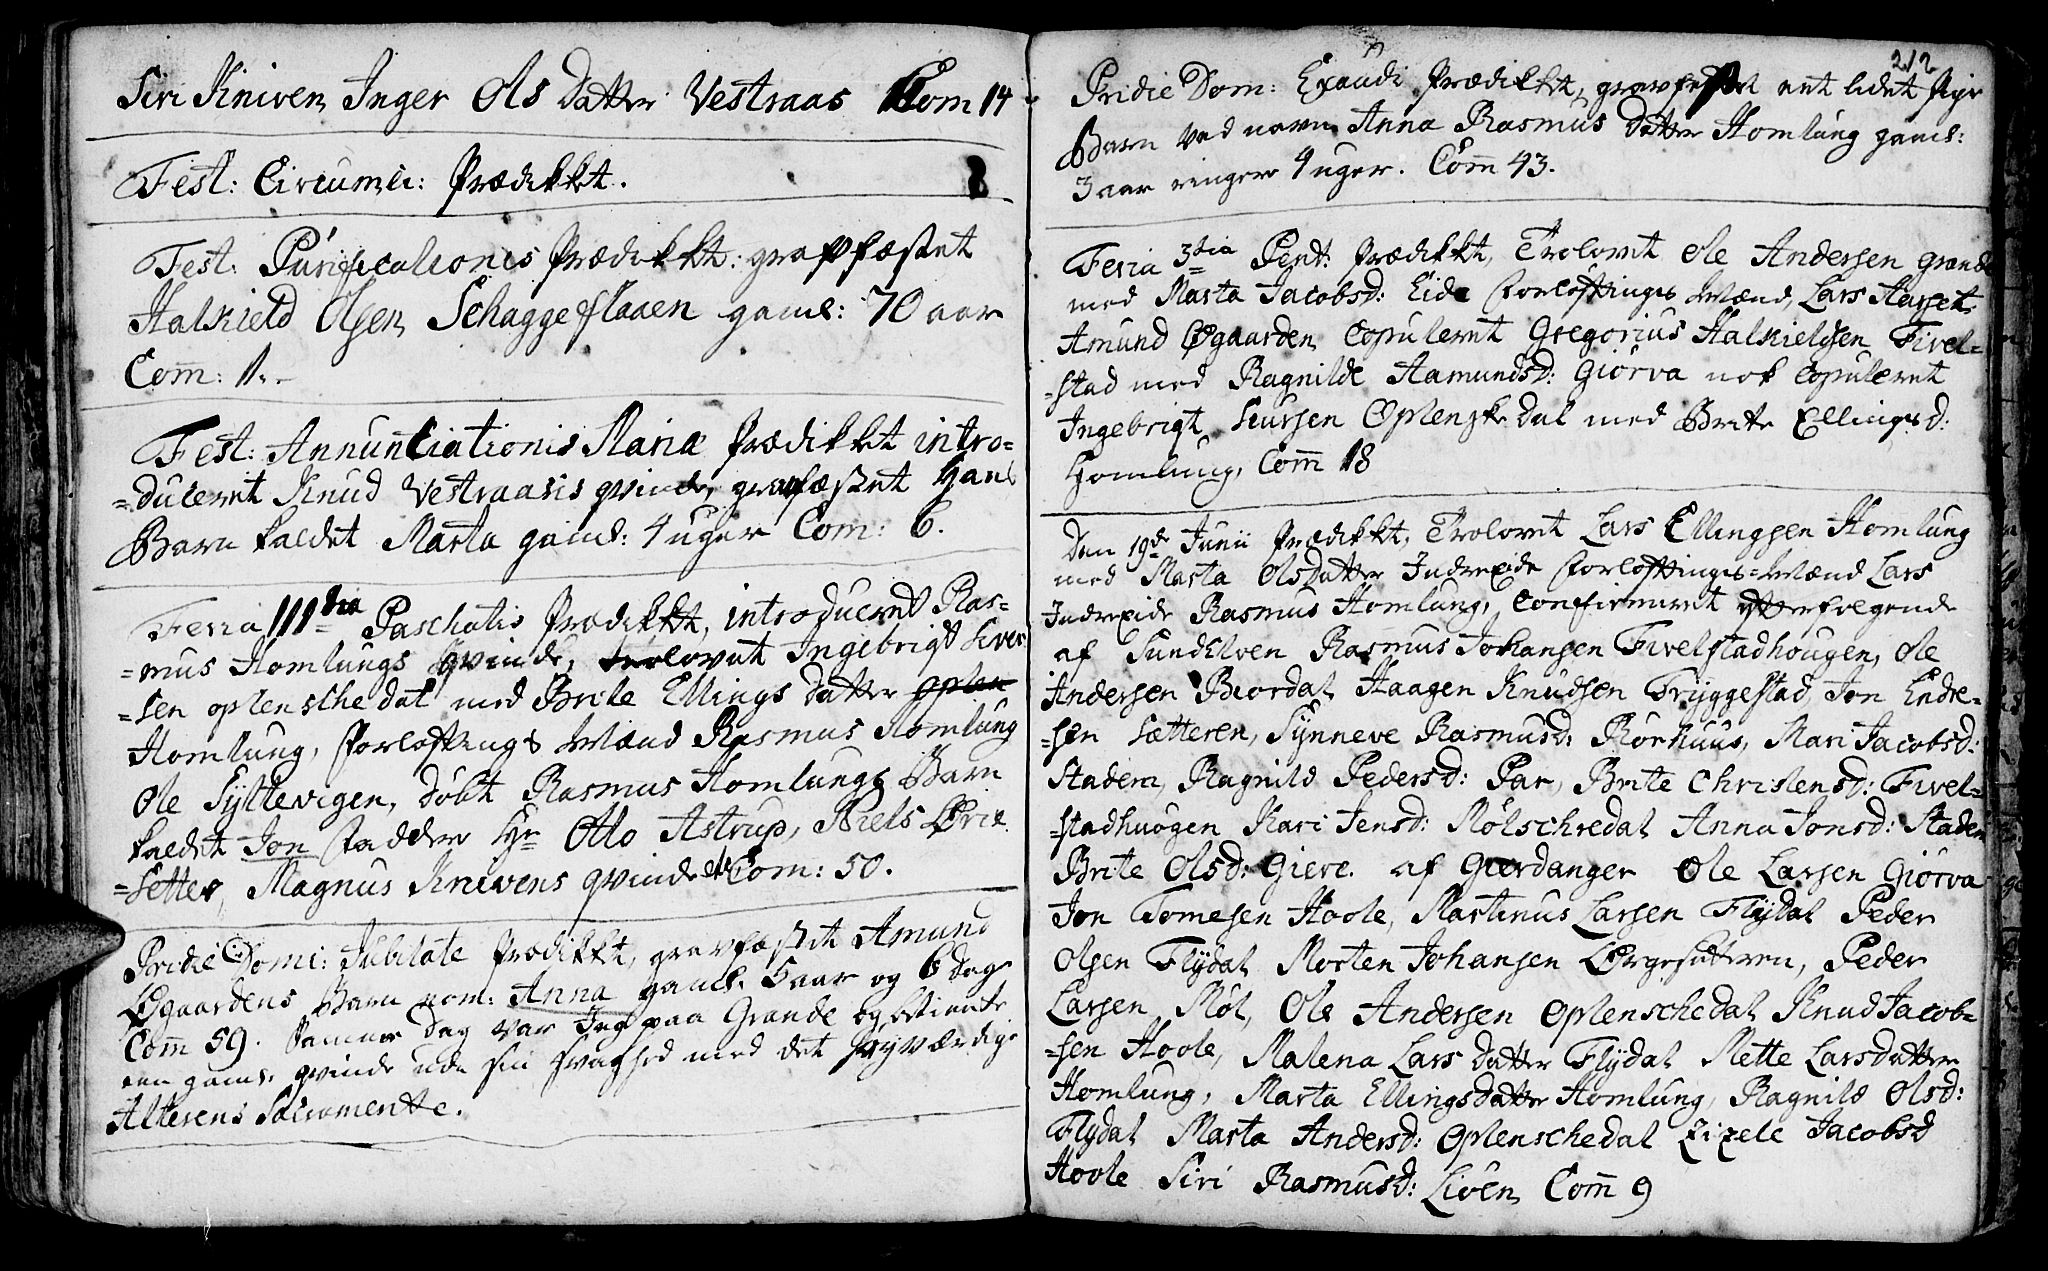 Siri Kniven Inger Ols Datter Vestraas Com 14
Fest: Circumci: Prædikket.
Fest: Purificationis Prædikket: grafvfæstet
Halkield Olsen Schaggeflaaen gaml: 70 aar
Com: 1.
Fest: Annuntiationis Mariæ Prædikket intro=
=duceret Knud Vestraasis qvinde, grafvfæstet Hans
Barn kaldet Marta gaml: 4 uger Com: 6.
Feria III tia Paschatis Prædikket, introduceret Ras=
=mus Homlungs qvinde, trolovet Ingebrigt Siver
=sen oplenschedal med Brite Ellings datter oplen
Homlung, forloftnings Mænd Rasmus Homlung
Ole Syltevigen, døbt Rasmus Homlungs Barn
kaldet Jon fadder Hr Otto Astrup, Niels Ørie
=setter, Magnus Knivens qvinde etc Com: 50.
Pridie Domi: Jubilate Prædikket, gravfæstet Amund
Øgaardens Barn nom: Anna gaml. 5 aar og 6 dage
Com 59. Samme dag var Jeg paa Grande og betiente
een gaml. qvinde udi sin svaghed med det høyværdige
Alterens Sacramente.
212
Pridie Dom: Exaudi Prædikket, gravfæstet eet lidet Pige
Barn ved navn Anna Rasmus Datter Homlung gaml:
3 aar ringere 4 uger. Com 43.
Feria 3tia Pent: Prædikket, Trolovet Ole Andersen grande
med Marta Jacobsd: Eide forloftnings Mænd, Lars Harset
Amund Øgaarden Copuleret Gregorius Halkieldsen Fivel=
=stad med Ragnilde Aamundsd: Giørva nok Copuleret
Ingebrigt Siursen Oplenskedal med Brite Ellingsd:
Homlung, Com 18
Den 19de Junii Prædikket, Trolovet Lars Ellingsen Homlung
med Marta Olsdatter Indreeide forloftnings=Mænd Lars
Indreeide Rasmus Homlung, Confirmeret efterfølgende
af Sundelven Rasmus Johansen Fivelstadhougen, Ole
Andersen Biordal Haagen Knudsen Tryggestad, Jon Endre=
=sen Sætteren, Synneve Rasmusd: Rørhuus, Mari Jacobsd:
Staden, Ragnild Pedersd: Par, Brite Christensd: Fivel=
=stadhuogen Kari Jensd: Mølschredal Anna Jonsd: Staden
Brite Olsd: Giere. af Gierdanger Ole Larsen Giørva
Jon Tomesen Hoole, Martinus Larsen Flydal Peder
Olsen Flydal Morten Johansen Ørgesætteren, Peder
Larsen Møl, Ole Andersen Oplenschedal Knud Jacob=
=sen Hoole, Malena Lars datter Flydal Mette Larsdatter
Homlung, Marta Ellingsdatter Homlung, Ragnild Olsd:
Flydal Marta Andersd: Oplenschedal Zizele Jacobsd
Hoole Siri Rasmusd: Lioen Com 9